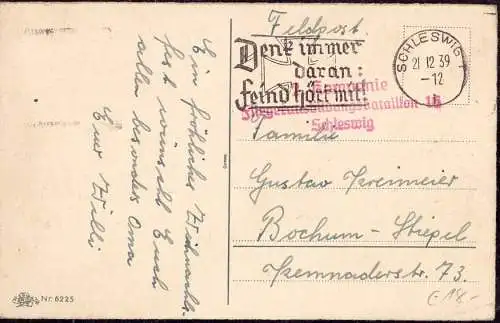 Feldpost.
Denk immer
daran:
feind hört mit!
SCHLESWIG 1
21 12 39
-12
1. Kompanie
Fliegerausbildungsbataillon 16
Schleswig
Ein fröhliches Weihnachts-
fest wünscht Euch
allen besonders Oma
Euer Willi
Familie
Gustav Kreimeier
Bochum-Stiepel
Kemnaderstr. 73.
Nr. 6225